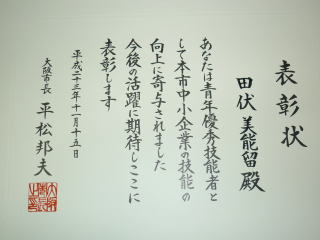 表彰状
田伏 美能留 殿
あなたは青年優秀技能者と
して本市中小企業の技能の
向上に寄与されました
今後の活躍に期待しここに
表彰します
平成二十三年十一月十五日
大阪市長 平松邦夫